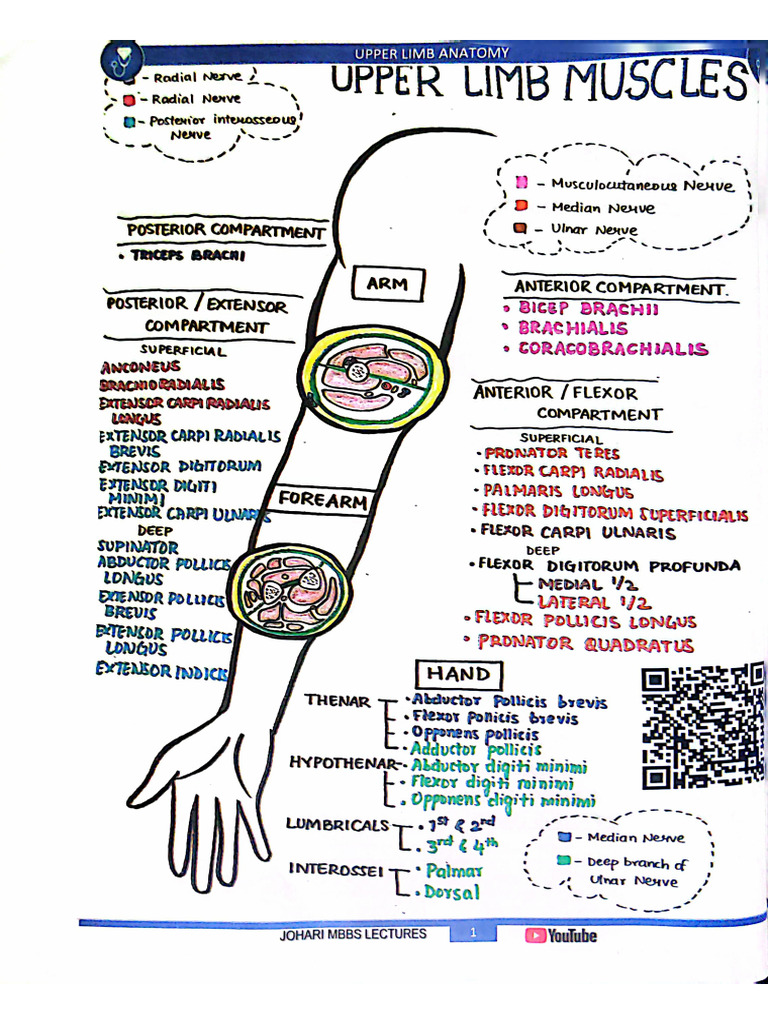 UPPER LIMB ANATOMY
UPPER LIMB MUSCLES
- Radial Nerve
- Radial Nerve
- Posterior interosseous
Nerve
- Musculocutaneous Nerve
- Median Nerve
- Ulnar Nerve
POSTERIOR COMPARTMENT
• TRICEPS BRACHI
ARM
ANTERIOR COMPARTMENT.
• BICEP BRACHII
• BRACHIALIS
• CORACOBRACHIALIS
POSTERIOR / EXTENSOR
COMPARTMENT
SUPERFICIAL
ANCONEUS
BRACHIORADIALIS
EXTENSOR CARPI RADIALIS
LONGUS
EXTENSOR CARPI RADIALIS
BREVIS
EXTENSOR DIGITORUM
EXTENSOR DIGITI
MINIMI
EXTENSOR CARPI ULNARIS
DEEP
SUPINATOR
ABDUCTOR POLLICIS
LONGUS
EXTENSOR POLLICIS
BREVIS
EXTENSOR POLLICIS
LONGUS
EXTENSOR INDICIS
FOREARM
ANTERIOR / FLEXOR
COMPARTMENT
SUPERFICIAL
• PRONATOR TERES
• FLEXOR CARPI RADIALIS
• PALMARIS LONGUS
• FLEXOR DIGITORUM SUPERFICIALIS
• FLEXOR CARPI ULNARIS
DEEP
• FLEXOR DIGITORUM PROFUNDA
MEDIAL 1/2
LATERAL 1/2
• FLEXOR POLLICIS LONGUS
• PRONATOR QUADRATUS
HAND
THENAR
• Abductor pollicis brevis
• Flexor pollicis brevis
• Opponens pollicis
• Adductor pollicis
HYPOTHENAR
• Abductor digiti minimi
• Flexor digiti minimi
• Opponens digiti minimi
LUMBRICALS
• 1st & 2nd
• 3rd & 4th
INTEROSSEI
• Palmar
• Dorsal
- Median Nerve
- Deep branch of
Ulnar Nerve
JOHARI MBBS LECTURES
1
YouTube